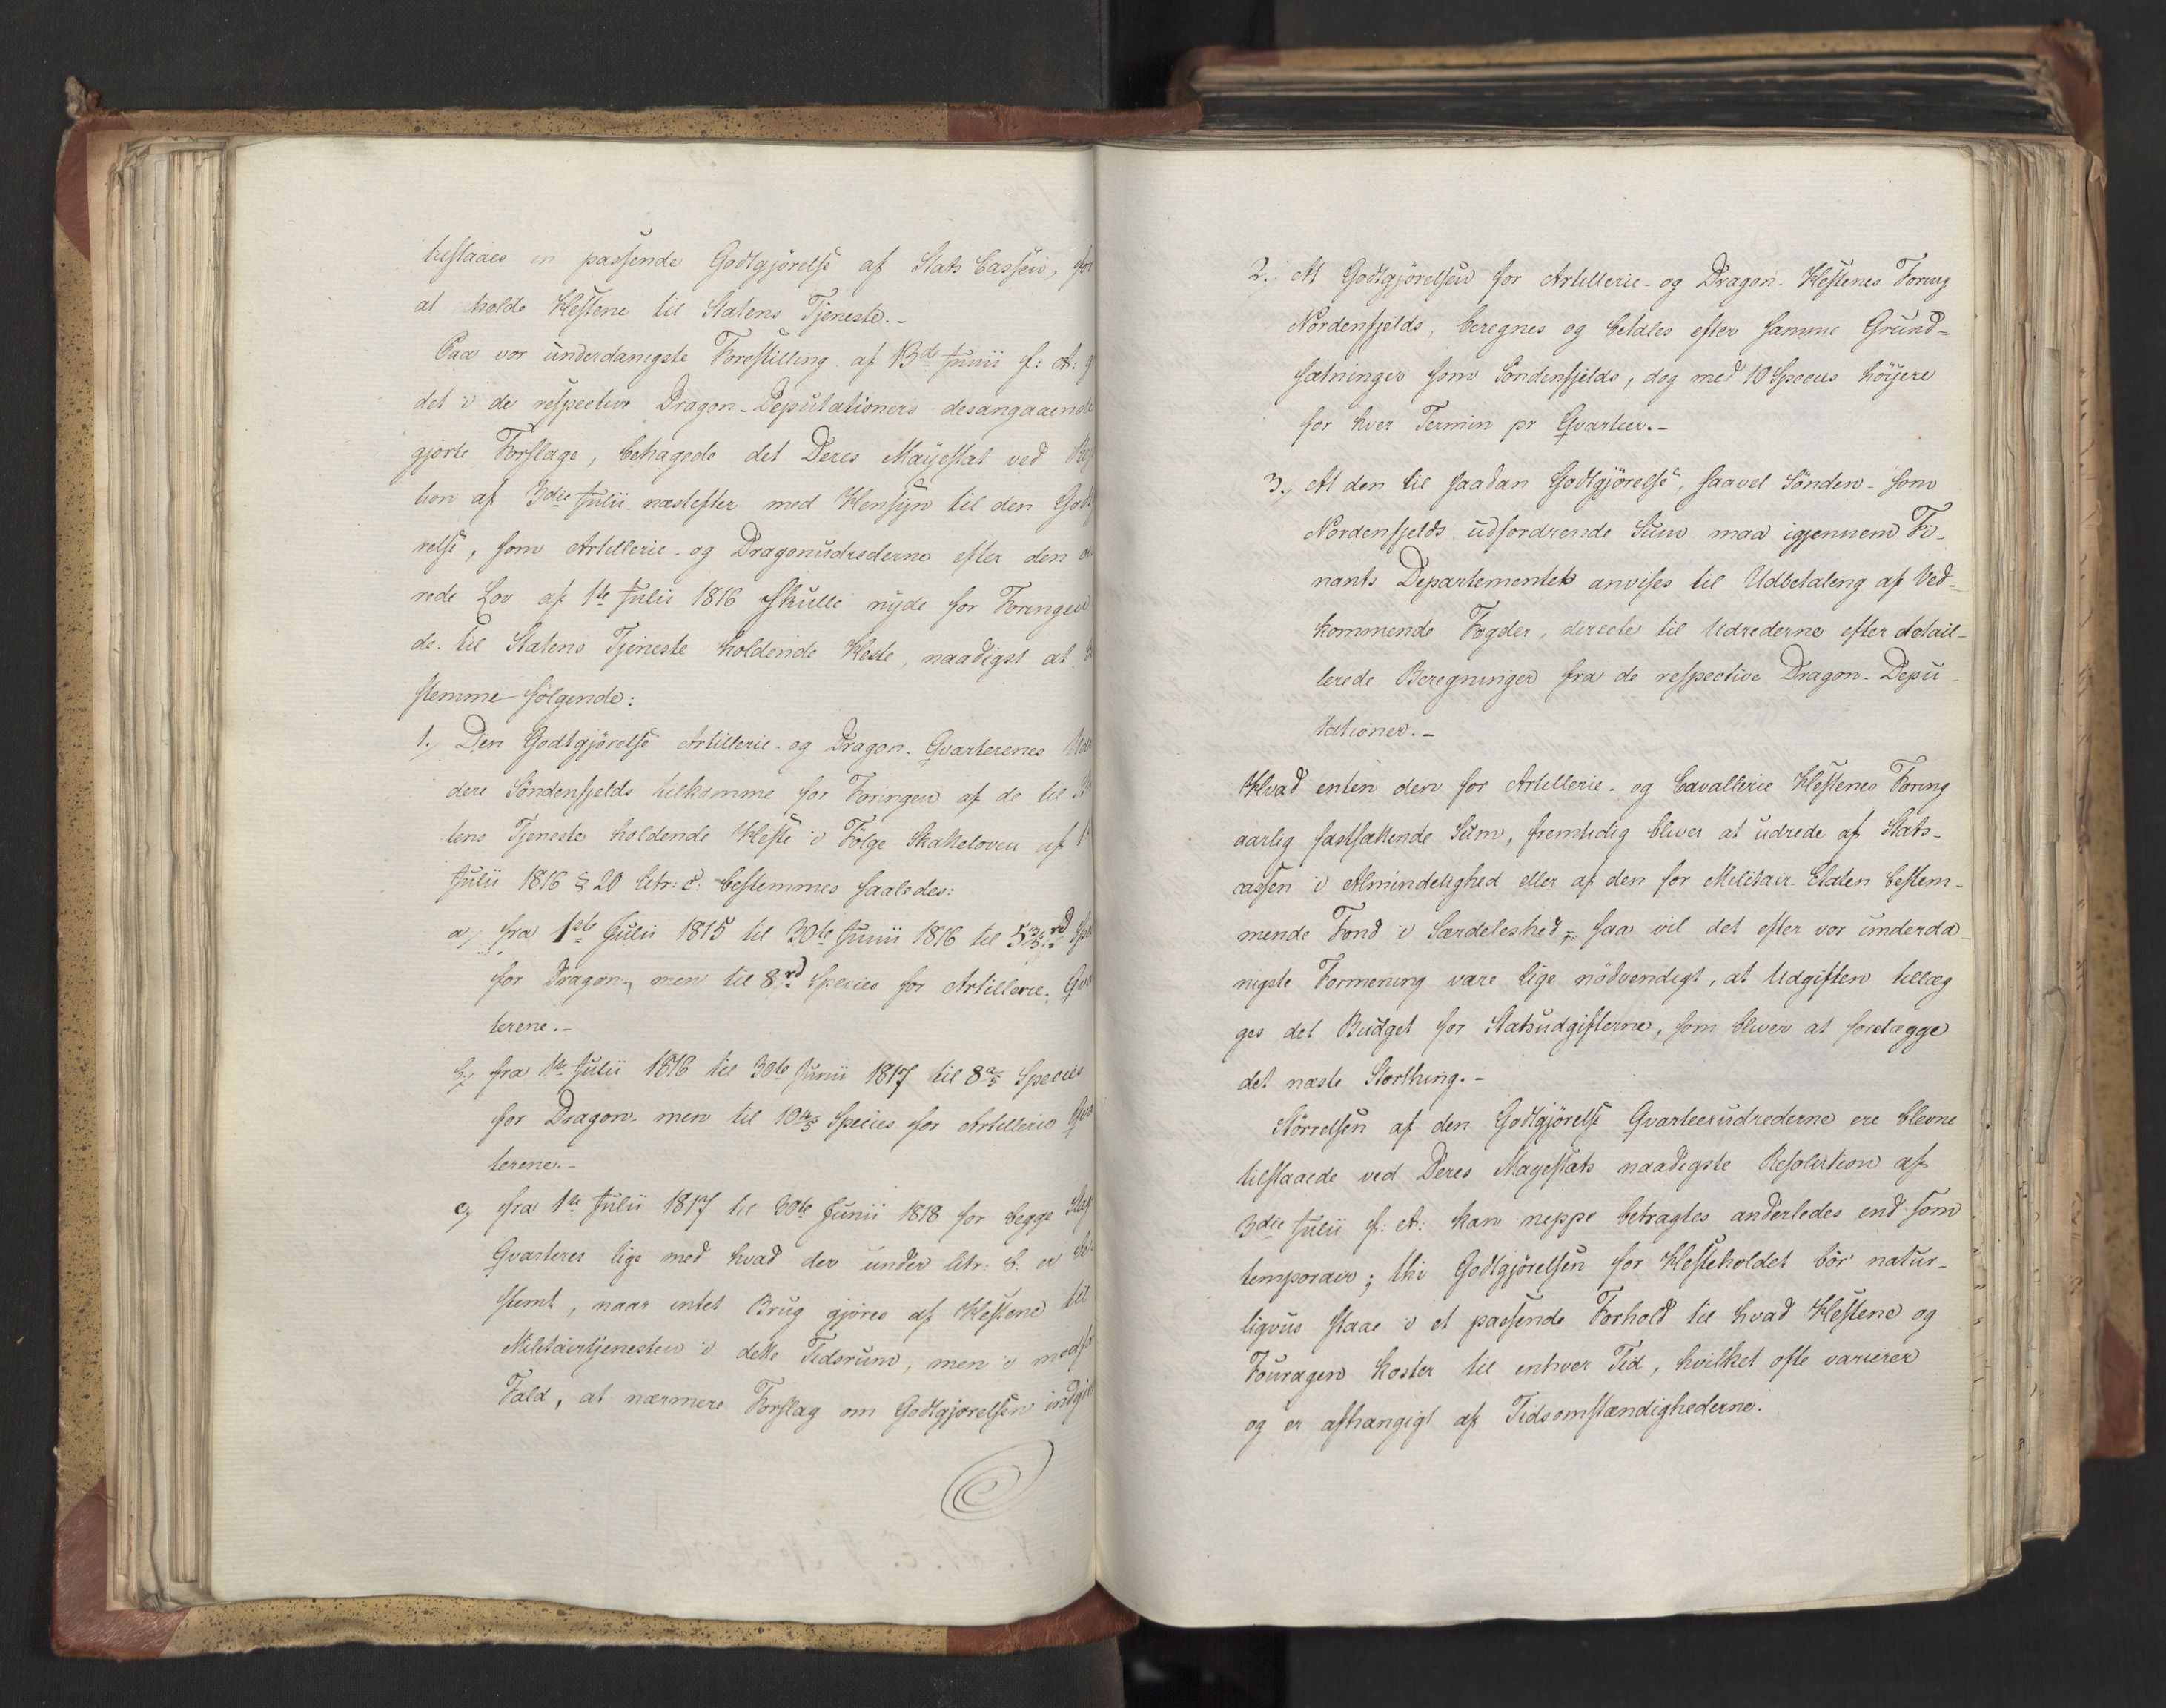 tilstaaes en passende Godtgjörelse af Stats Cassen, for
at holde Hestene til Statens Tjeneste.-
Paa vor underdanigste Forestilling af 13de Junii f: A:
det i de respective Dragon-Deputationers desangaaende
gjorte Forslage, behagede det Deres Mayestæt ved
tion af 3die Julii næstefter med Hensyn til den Godtgj
relse, som Artillerie- og Dragonudrederne efter den
rede Lov af 1ste Julii 1816 skulle nyde for Foringen
de til Statens Tjeneste holdende Heste, naadigst at be
stemme følgende:
1., Den Godtgjörelse Artillerie- og Dragon-Qvarterenes Udre
dere Söndenfjelds tilkomme for Foringen af de til Sta
tens Tjeneste holdende Heste i Fölge Skatteloven af 1
Julii 1816 § 20 litr: c: bestemmes saaledes:
a, fra 1ste Julii 1815 til 30te Junii 1816 til 5 3/5 rd Spe
for Dragon- men til 8 rd Species for Artillerie- Qvar
terene.-
b, fra 1ste Julii 1816 til 30te Junii 1817 til 8 2/5 Species
for Dragon- men til 10 4/5 Species for Artillerie Qvar
terene.-
c, fra 1ste Julii 1817 til 30te Junii 1818 for begge Slags
Qvarterer lige med hvad der under litr: b. er be
stemt, naar intet Brug gjöres af Hestene til
Militairtjenesten i dette Tidsrum, men i modsat
Fald, at nærmere Forslag om Godtgjörelsen indgives
2., At Godtgjörelsen for Artillerie- og Dragon-Hestenes Foring
Nordenfjelds, beregnes og betales efter samme Grund-
sætninger som Söndenfjelds, dog med 10 Species höiere
for hver Termin pr Qvarteer.-
3., At den til saadan Godtgjörelse, saavel Sönden- som
Nordenfjelds udfordrende Sum maa igjennem Fi-
nants Departementet anvises til Udbetaling af Ved-
kommende Fogder, directe til Udrederne efter detail-
lerede Beregninger fra de respective Dragon-Depu-
tationer.-
Hvad enten den for Artillerie- og Cavallerie Hestenes Foring
aarlig fastsættende Sum, fremtidig bliver at udrede af Stats-
cassen i Almindelighed eller af den for Militair-Etaten bestem-
mende Fond i Særdeleshed, saa vil det efter vor underda-
nigste Formening være lige nödvendigt, at Udgiften tillæg
ges det Budget for Statsudgifterne, som bliver at forelægge
det næste Storthing.-
Störrelsen af den Godtgjörelse Qvarteerudrederne ere blevne
tilstaaede ved Deres Mayestæts naadigste Resolution af
3die Julii f: A: kan neppe betragtes anderledes end som
temporair; thi Godtgjörelsen for Hesteholdet bör natur-
ligviis staae i et passende Forhold til hvad Hestene og
Fouragen koster til enhver Tid, hvilket ofte varierer
og er afhængigt af Tidsomstændighederne.